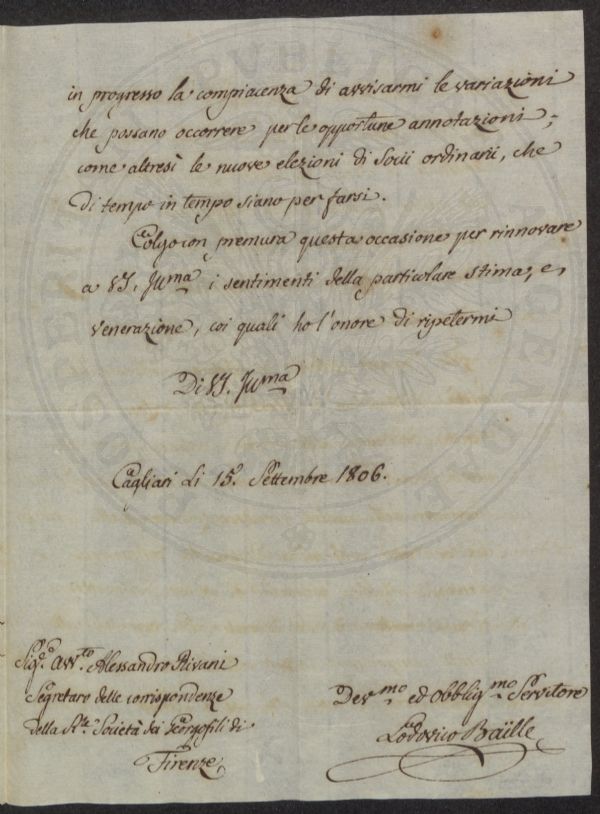 in progresso la compiacenza di avvisarmi le variazioni
che possano occorrere per le opportune annotazioni;
come altresì le nuove elezioni di Socii ordinarii, che
di tempo in tempo siano per farsi.
Colgo con premura questa occasione per rinnovare
a VS. Illma i sentimenti della particolare stima, e
venerazione, coi quali ho l'onore di ripetermi
Di VS. Illma
Cagliari li 15. Settembre 1806.
Sigr. Avvto. Alessandro Rivani
Segretaro delle corrispondenze
della Rle Società dei Georgofili di
Firenze
Devmo ed Obbligmo Servitore
Lodovico Baïlle